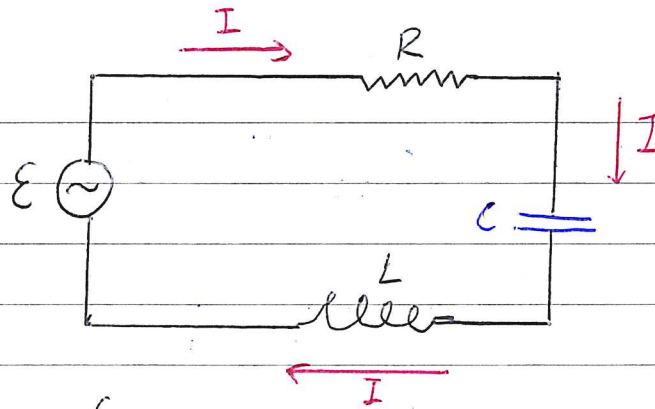 I
R
I
ℰ
C
L
I